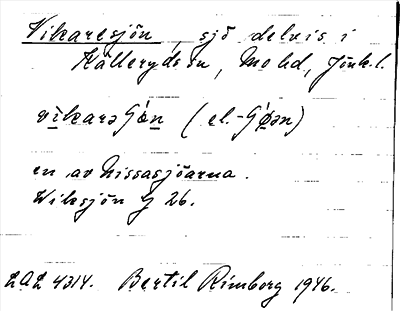 Vikaresjön, sjö delvis i
Kålleryds sn, Mo hd, Jönk. l.
vikarəʃøn (el. -ʃøən)
en av Nissasjöarna.
Wiksjön G 26.
LAL 4314. Bertil Rimborg 1946.